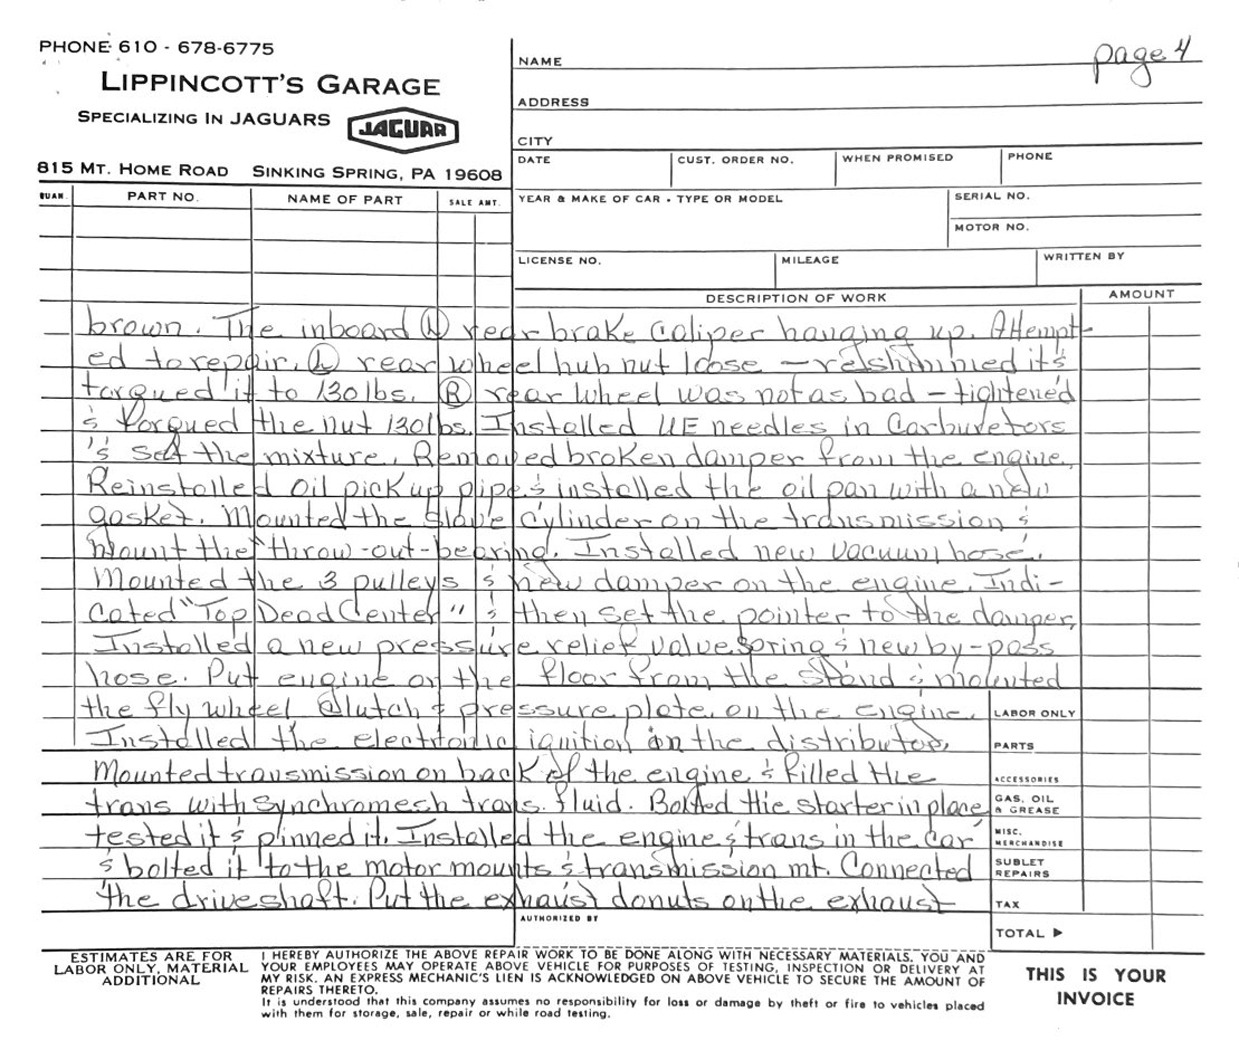 PHONE 610 - 678-6775
LIPPINCOTT'S GARAGE
SPECIALIZING IN JAGUARS JAGUAR
815 MT. HOME ROAD SINKING SPRING, PA 19608
page 4
NAME
ADDRESS
CITY
DATE CUST. ORDER NO. WHEN PROMISED PHONE
QUAN. PART NO. NAME OF PART SALE AMT.
YEAR & MAKE OF CAR - TYPE OR MODEL SERIAL NO.
MOTOR NO.
LICENSE NO. MILEAGE WRITTEN BY
DESCRIPTION OF WORK AMOUNT
brown. The inboard (L) rear brake caliper hanging up. Attempt-
ed to repair. (L) rear wheel hub nut loose - reshimmed it &
torqued it to 130 lbs. (R) rear wheel was not as bad - tightened
& torqued the nut 130 lbs. Installed UE needles in Carburetors
& set the mixture. Removed broken damper from the engine.
Reinstalled oil pickup pipe & installed the oil pan with a new
gasket. Mounted the slave cylinder on the transmission &
mount the "throw-out-bearing. Installed new vacuum hose.
Mounted the 3 pulleys & new damper on the engine. Indi-
cated "Top Dead Center" & then set the pointer to the damper.
Installed a new pressure relief valve spring & new by-pass
hose. Put engine on the floor from the stand & mounted
the fly wheel clutch & pressure plate on the engine.
Installed the electronic ignition in the distributor.
Mounted transmission on back of the engine & filled the
trans with synchromesh trans. fluid. Bolted the starter in place
tested it & pinned it. Installed the engine & trans in the car
& bolted it to the motor mounts & transmission mt. Connected
the driveshaft. Put the exhaust donuts on the exhaust
LABOR ONLY
PARTS
ACCESSORIES
GAS, OIL
& GREASE
MISC.
MERCHANDISE
SUBLET
REPAIRS
TAX
TOTAL ▶
AUTHORIZED BY
ESTIMATES ARE FOR
LABOR ONLY, MATERIAL
ADDITIONAL
I HEREBY AUTHORIZE THE ABOVE REPAIR WORK TO BE DONE ALONG WITH NECESSARY MATERIALS. YOU AND
YOUR EMPLOYEES MAY OPERATE ABOVE VEHICLE FOR PURPOSES OF TESTING, INSPECTION OR DELIVERY AT
MY RISK. AN EXPRESS MECHANIC'S LIEN IS ACKNOWLEDGED ON ABOVE VEHICLE TO SECURE THE AMOUNT OF
REPAIRS THERETO.
It is understood that this company assumes no responsibility for loss or damage by theft or fire to vehicles placed
with them for storage, sale, repair or while road testing.
THIS IS YOUR
INVOICE